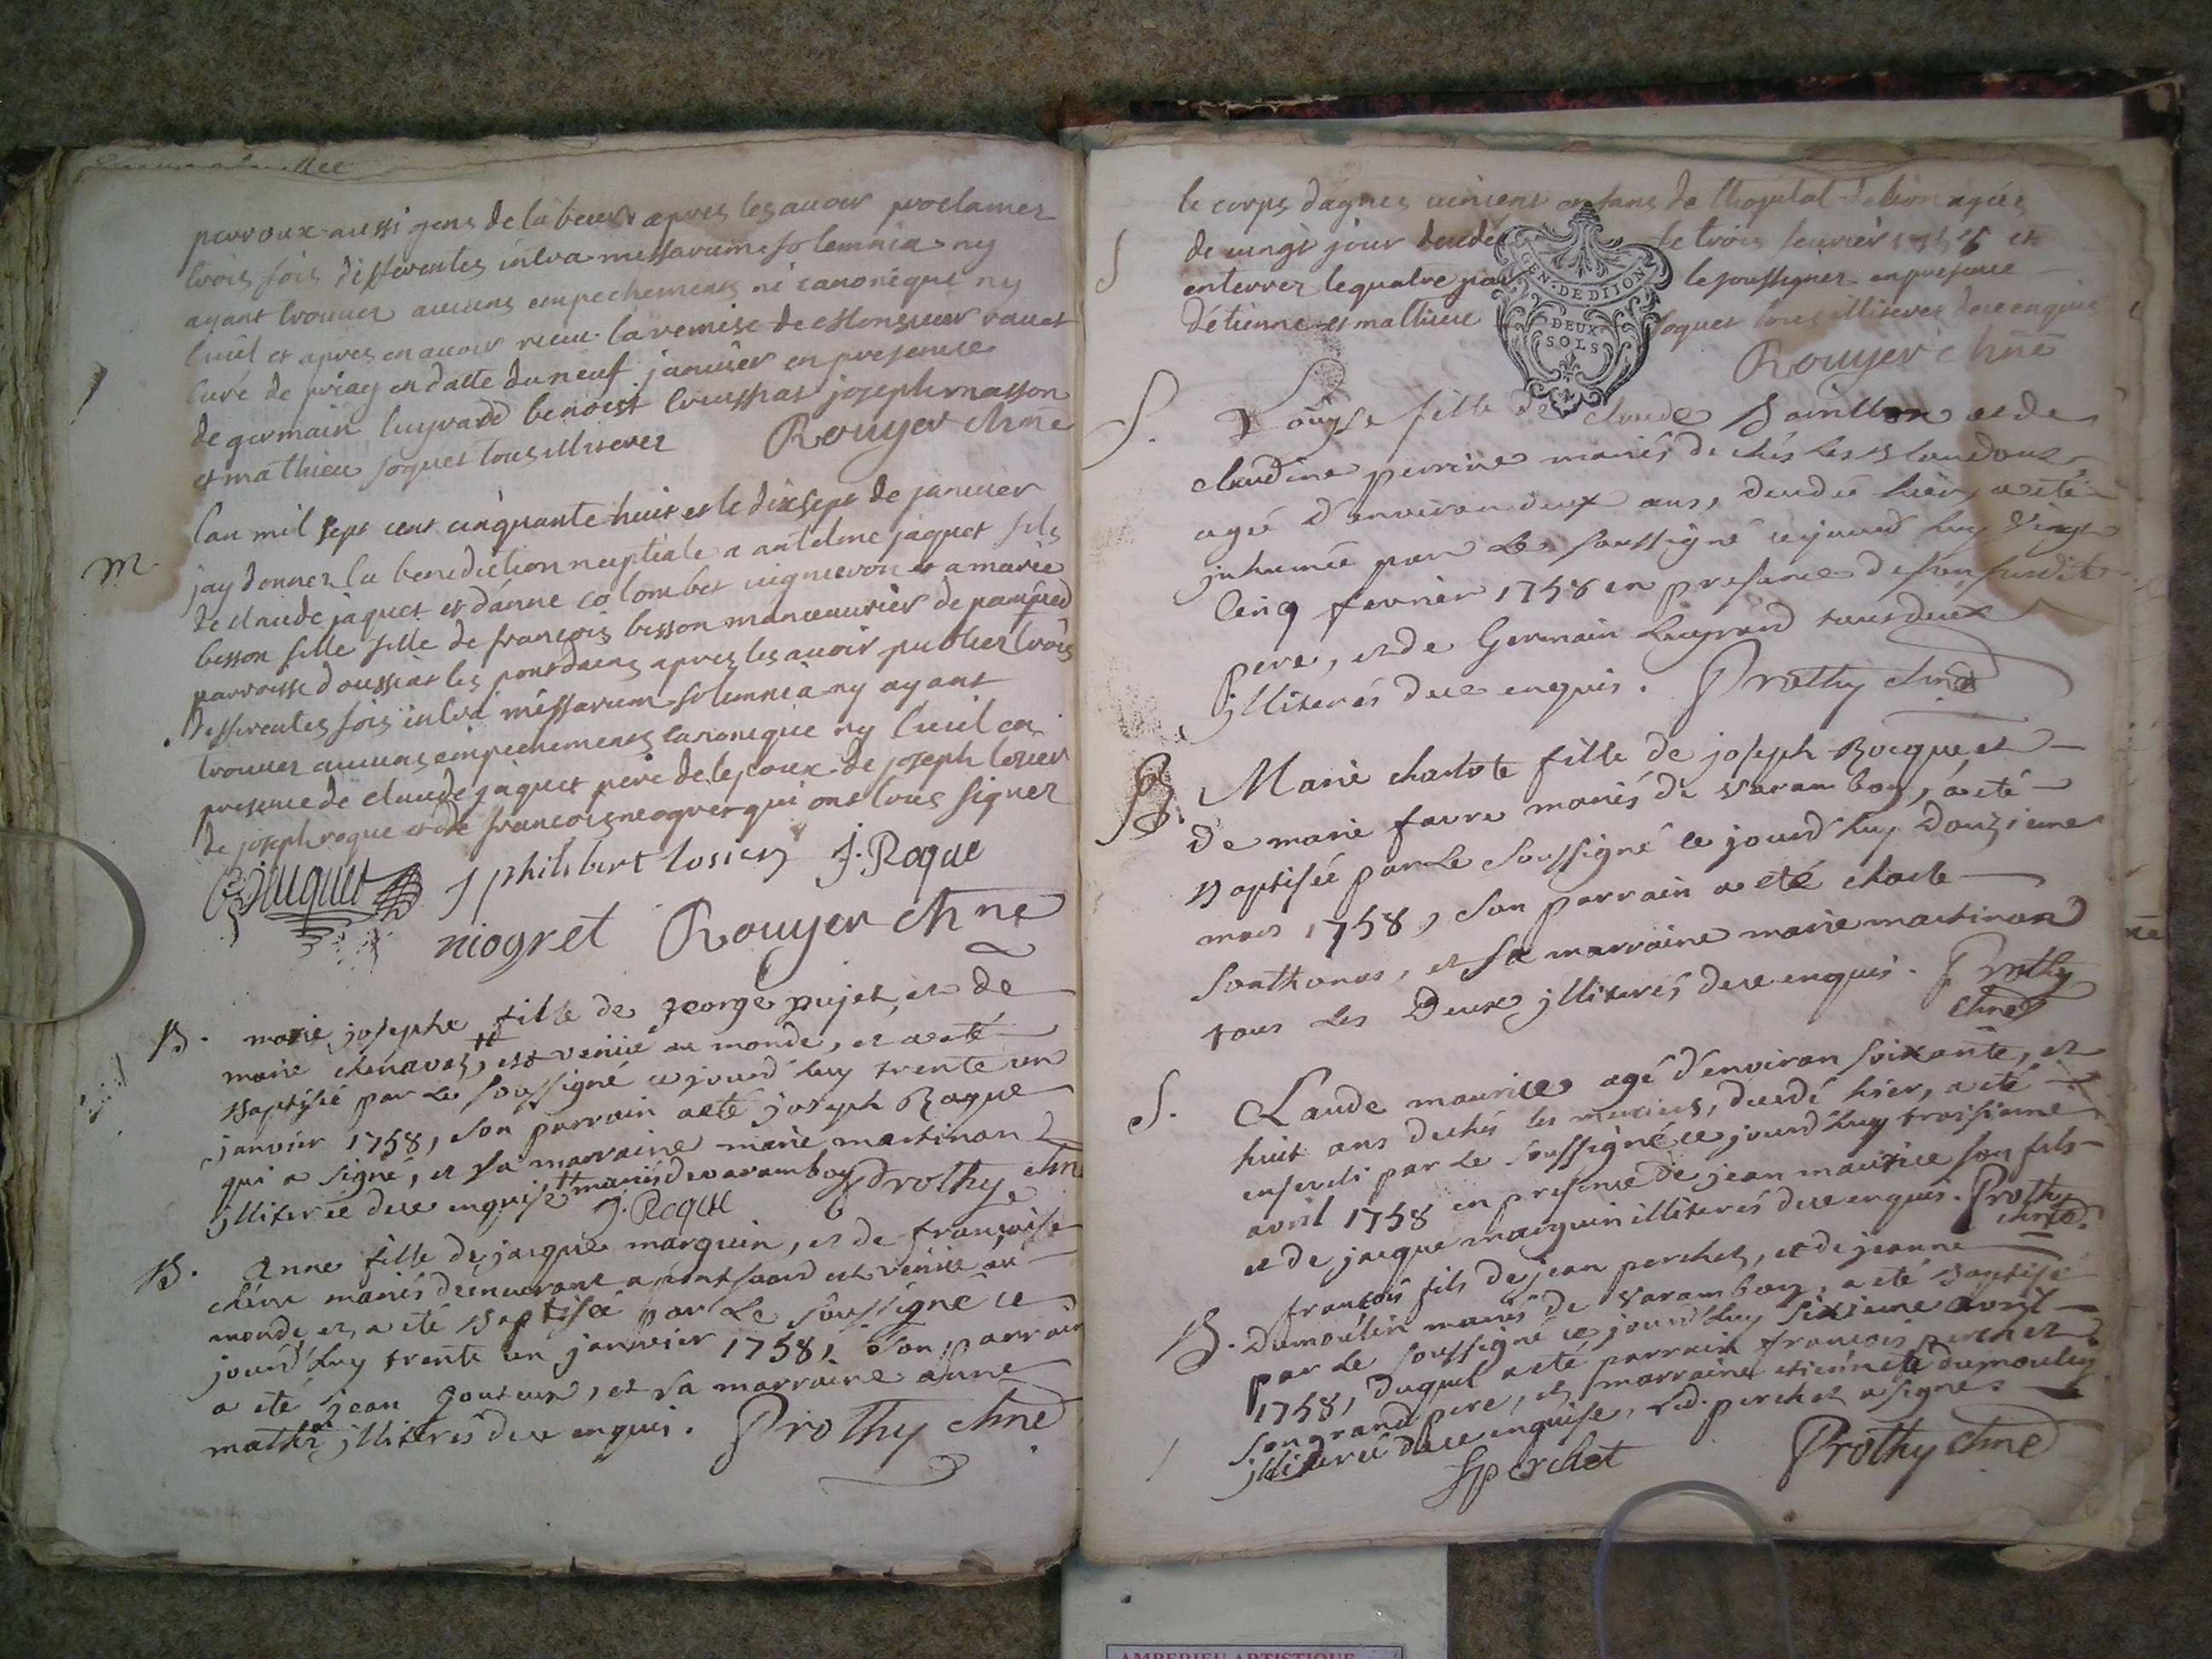 perroux aussi gens de labeur apres les avoir proclamez
trois fois differentes intra messarum solemnia ny
ayant trouver aucuns empechements ni canonique ny
civil et apres en avoir recue la remise de Monsieur ravet
curé de priay en datte du neuf janvier en presence
de germain luyrard benoist croussat joseph masson
et mathieu soquet tous illiterez Rouyer chne
M. lan mil sept cent cinquante huit et le dixsept de janvier
jay donner la benediction nuptiale a antelme jaquet fils
de claude jaquet et d'anne colombet vigneron et a marie
besson fille fille de françois besson manœuvrier de
parroisse doussiat les pontdains apres les avoir publier trois
differentes fois intra messarum solemnia ny ayant
trouver aucuns empechements canonique ny civil en
presence de claude jaquet pere de lepoux de joseph losier
de joseph roque et de francois neogret qui ont tous signer
C Jaquet J philibert losier J. Roque
niogret Rouyer chne
B. marie josephe fille de george pujet, et de
marie chenavas, # est venüe au monde, et a été
baptisée par le soussigné ce jourd'huy trente un
janvier 1758, son parrain a eté joseph Roque
qui a signé, et sa marraine marie martinand
illiterée de ce enquise # mariés de varambon Prothy chne
J. Roque
B. Anne fille de jacque marguin, et de françoise
chêne mariés demeurant a pont saard est venüe au
monde, et a eté baptisée par le soussigné ce
jourd'huy trente un janvier 1758, son parrain
a eté jean gouteux, et sa marraine anne
mathi illiterés de ce enquis. Prothy chne
le corps d'agnes vincent enfans de lhopital de lion agée
S de vingt jour decedé le trois fevrier et
enterrez le quatre par le soussignez en presence
d'étienne et mathieu soquet tous illiterez de ce enquis
GEN. DE DIJON
DEUX
SOLS
Rouyer chne
S. Louyse fille de claude et de
claudine perrine mariés de chés les Blondoux
agée d'environ deux ans, decedée hier, a eté
inhumée par le soussigné cejourd'huy vingt
cinq fevrier 1758 en presence de son susdit
pere, et de Germain Luyrard tous deux
illiterés de ce enquis. Prothy chne
B. Marie charlote fille de joseph Rocque et
de marie favre mariés de varambon, a eté
baptisée par le soussigné ce jourd'huy douzieme
mars 1758, son parrain a eté charle
sonthonas, et sa marraine marie martinand
tous les Deux illiterés de ce enquis. Prothy
chne
S. Claude maurice agé d'environ soixante, et
huit ans de chés les muriers, decedé hier, a eté
enseveli par le soussigné ce jourd'huy troisieme
avril 1758 en presence de jean maurice son fils
et de jacque marguin illiterés de ce enquis. Prothy
chne
françois fils de jean perchet, et de jeanne
B. Dumoulin mariés de varambon, a eté baptisé
par le soussigné ce jourd'huy sixieme avril
1758, duquel a eté parrain françois perchet
son grand pere, et marraine etiennete dumoulin
illiterée de ce enquise, led. perchet a signé.
fperchet Prothy chne
AMBERIEU ARTISTIQUE